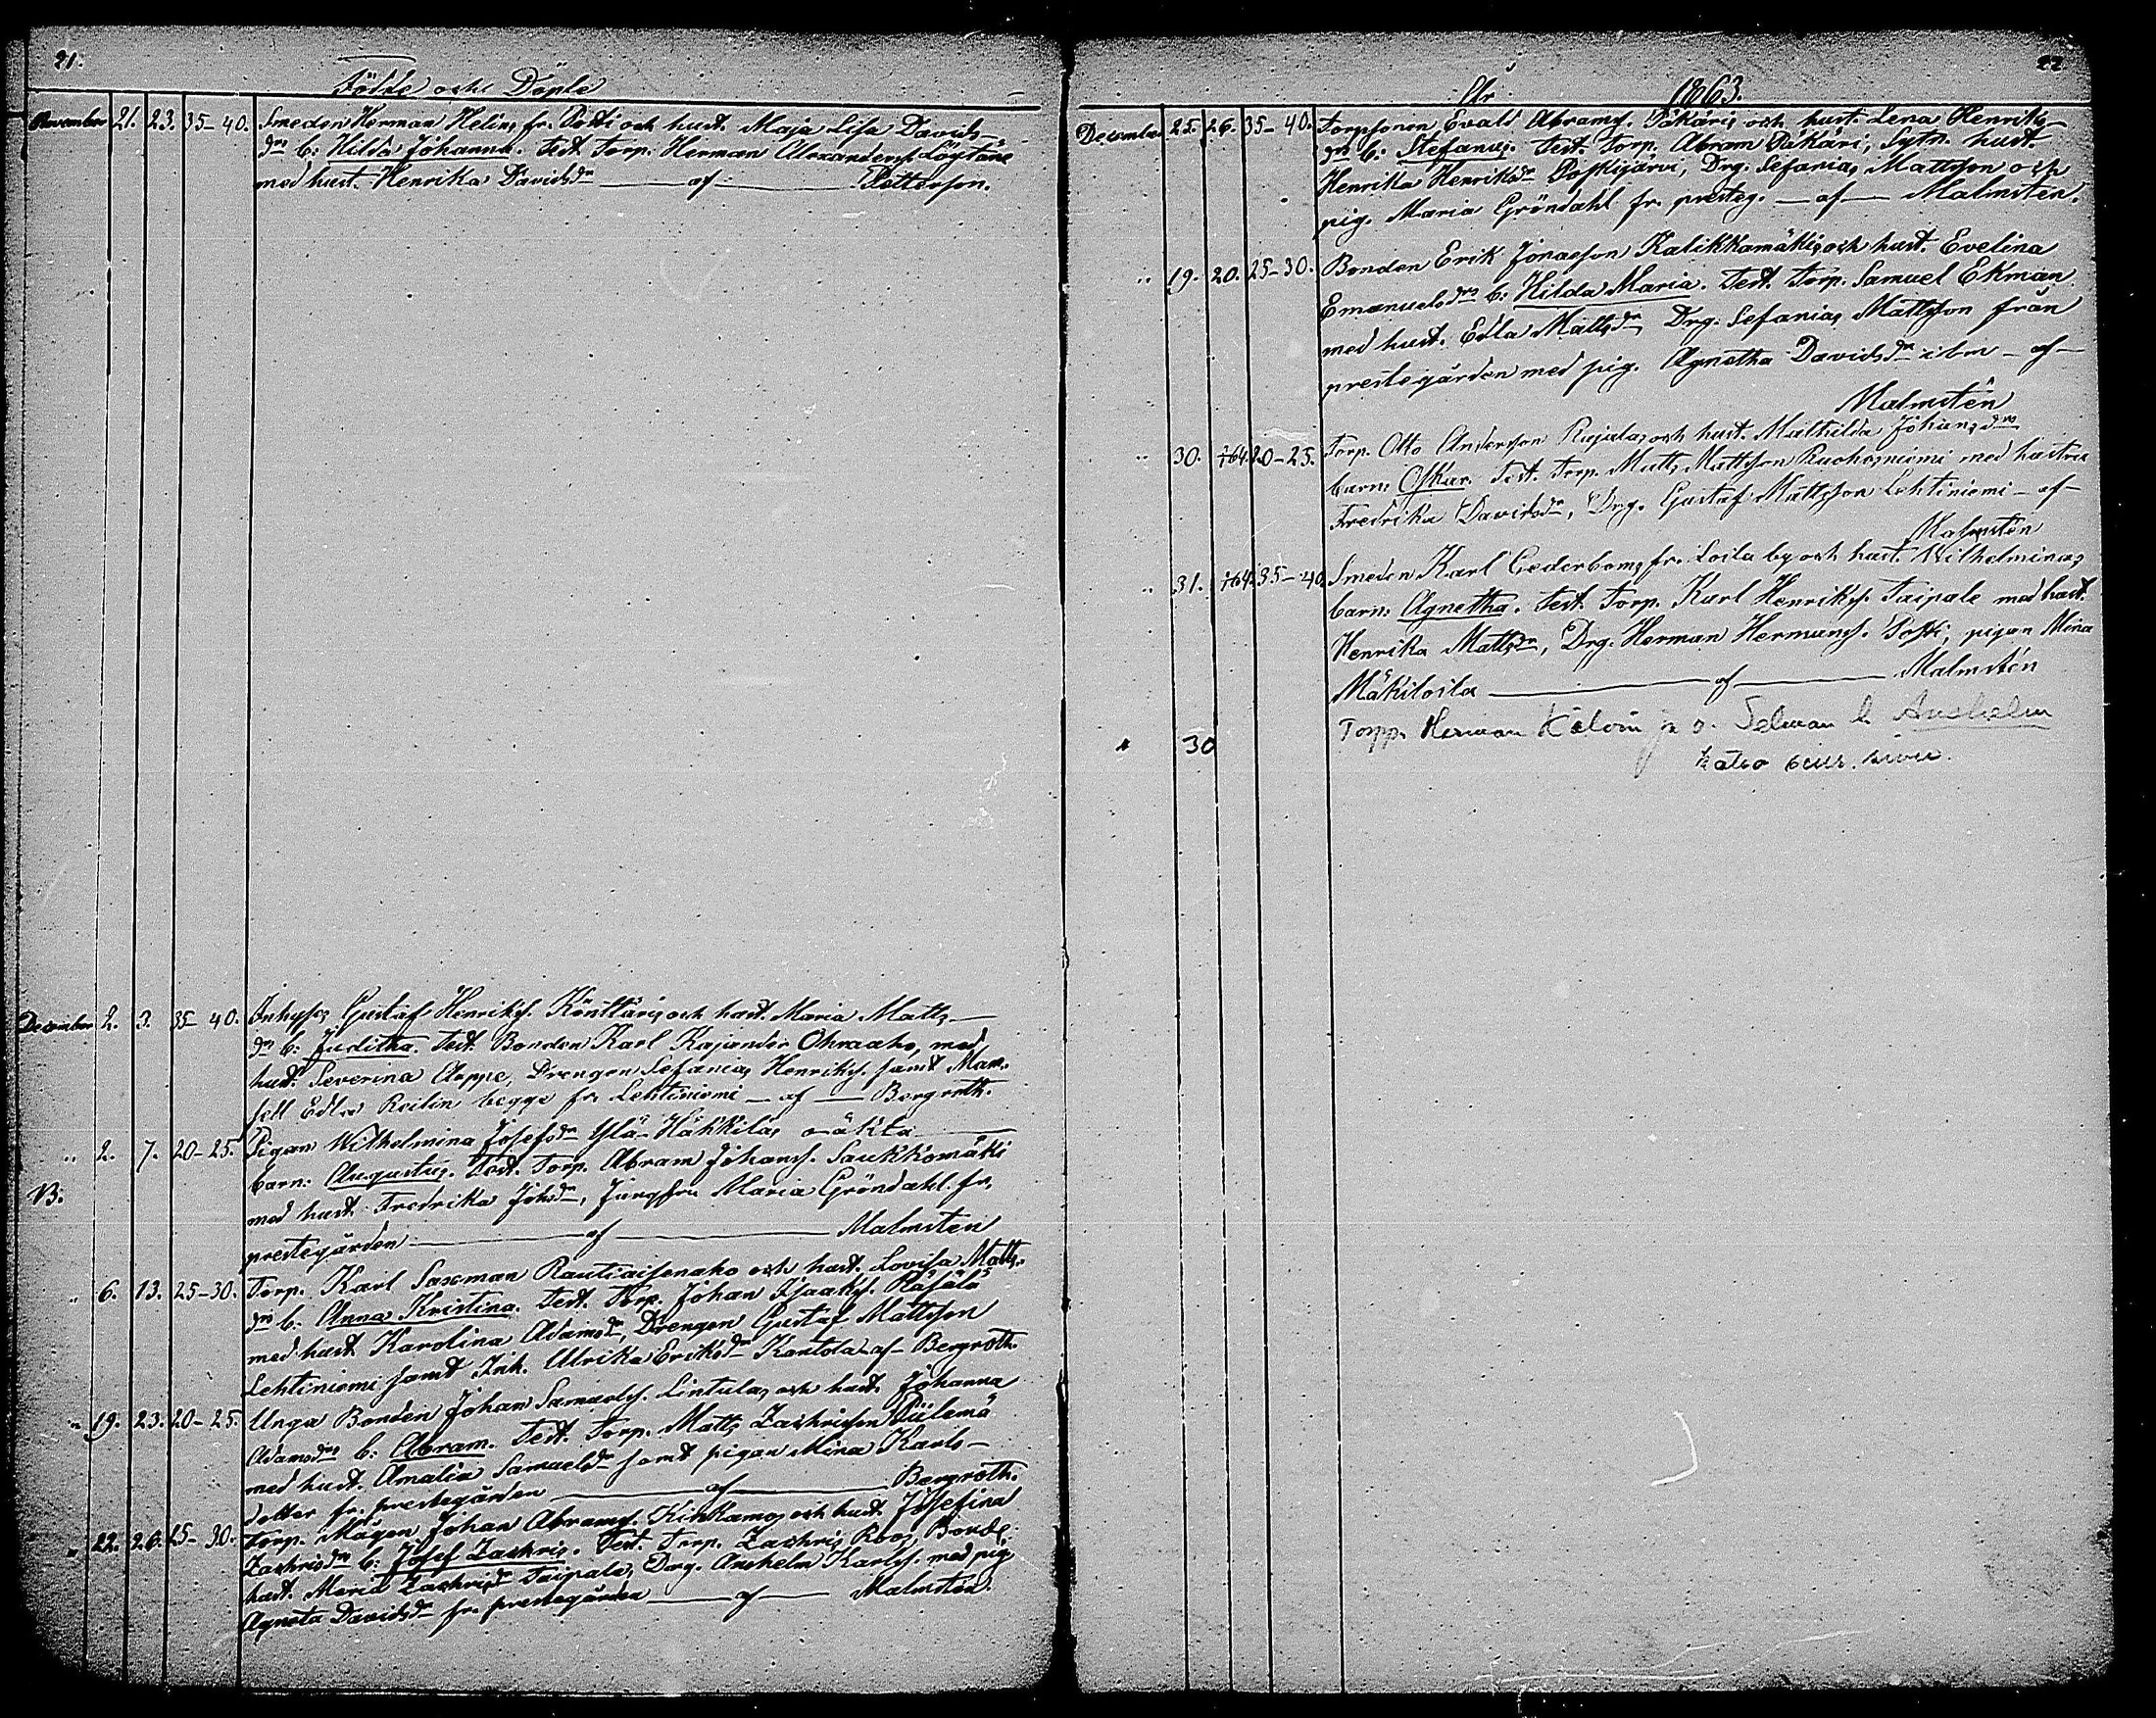 21.
Födde och Döpte
November 21. 23. 35-40. Smeden Herman Helins fr. Posti och hust. Maja Lisa Davids-
drs b: Hilda Johanna. Test. Torp. Herman Alexanders. Löytäne
med hust. Henrika Davidsdr — af — Petterson.
December 2. 3. 35-40. Inhyses Gustaf Henrikss. Könttäris och hust. Maria Matts-
drs b: Juditha. Test. Bonden Karl Kajander Ohraaho, med
hust. Severina Aeppe, Drengen Sefanias Henrikss. samt Mam-
sell Edla Reilin begge fr. Lehtiniemi — af — Bergroth.
„ 2. 7. 20-25. Pigan Wilhelmina Josefsdr Ylä-Häkkilas oäkta
barn: Augustus. Test. Torp. Abram Johanss. Saukkomäki
NB.
med hust. Fredrika Johsdr, Jungfru Maria Gröndahl fr.
prestegården — af — Malmstén
„ 6. 13. 25-30. Torp. Karl Saxman Rautiaisenaho och hust. Lovisa Matts-
drs b: Anna Kristina. Test. Torp. Johan Isaakss. Räsälä
med hust. Karolina Adamsdr, Drengen Gustaf Mattsson
Lehtiniemi samt Inh. Ulrika Eriksdr Kantola af Bergroth.
„ 19. 23. 20-25. Unga Bonden Johan Samuelss. Lintulas och hust. Johanna
Adamsdrs b: Abram. Test. Torp. Matts Zachrisson Piilemä
med hust. Amalia Samuelsdr samt pigan Mina Karls-
dotter fr. prestegården — af — Bergroth.
„ 22. 26. 25-30. Torp. Mågen Johan Abramss. Kinkamos och hust. Josefina
Zachrisdrs b: Josef Zachris. Test. Torp. Zachris Roos, Bonde
hust. Maria Zachrisdr Taipale, Drg. Anshelm Karlss. med pig.
Agneta Davidsdr fr. prestegården — af — Malmstén.
22
År 1863.
December 25. 26. 35-40. Torpsonen Evald Abramss. Päkäris och hust. Lena Henriks-
drs b: Stefanus. Test. Torp. Abram Päkäri, Sytn. hust.
Henrika Henriksdr Poskijärvi, Drg. Sefanias Mattsson och
pig. Maria Gröndahl fr. presteg. — af — Malmstén.
„ 19. 20. 25-30. Bonden Erik Jonasson Kalikkamäkis och hust. Evelina
Emanuelsdrs b: Hilda Maria. Test. Torp. Samuel Ekman
med hust. Edla Mattsdr, Drg. Sefanias Mattsson från
prestegården med pig. Agnetha Davidsdr ibm - af -
Malmstén
„ 30. 1/1 64. 20-25. Torp. Otto Andersson Rajalas och hust. Mathilda Johansdrs
barn: Oskar. Test. Torp. Matts Mattsson Ruohoniemi med hustru
Fredrika Davidsdr, Drg. Gustaf Mattsson Lehtiniemi - af -
Malmstén
„ 31. 1/1 64. 35-40. Smeden Karl Cederboms fr. Loila by och hust. Wilhelminas
barn: Agnetha. Test. Torp. Karl Henrikss. Taipale med hust.
Henrika Mattsdr, Drg. Herman Hermanss. Posti, pigan Mina
Mäkiloila — af — Malmstén
„ 30 Torpp. Herman Kälvin ja v. Selman l. Anshelm
katso seur. sivu.